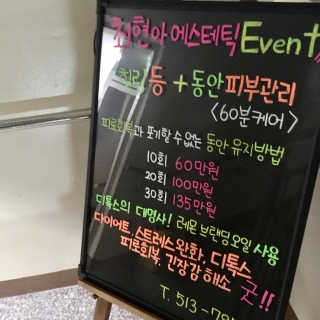 최현아 에스테틱 Event
등 + 동안 피부관리
<60분케어>
피로회복과 포기할 수 없는 동안 유지방법
10회 60만원
20회 100만원
30회 135만원
디톡스의 대명사! 레몬 브랜딩오일 사용
다이어트, 스트레스완화, 디톡스
피로회복, 긴장감 해소 굿!!
T. 513-79